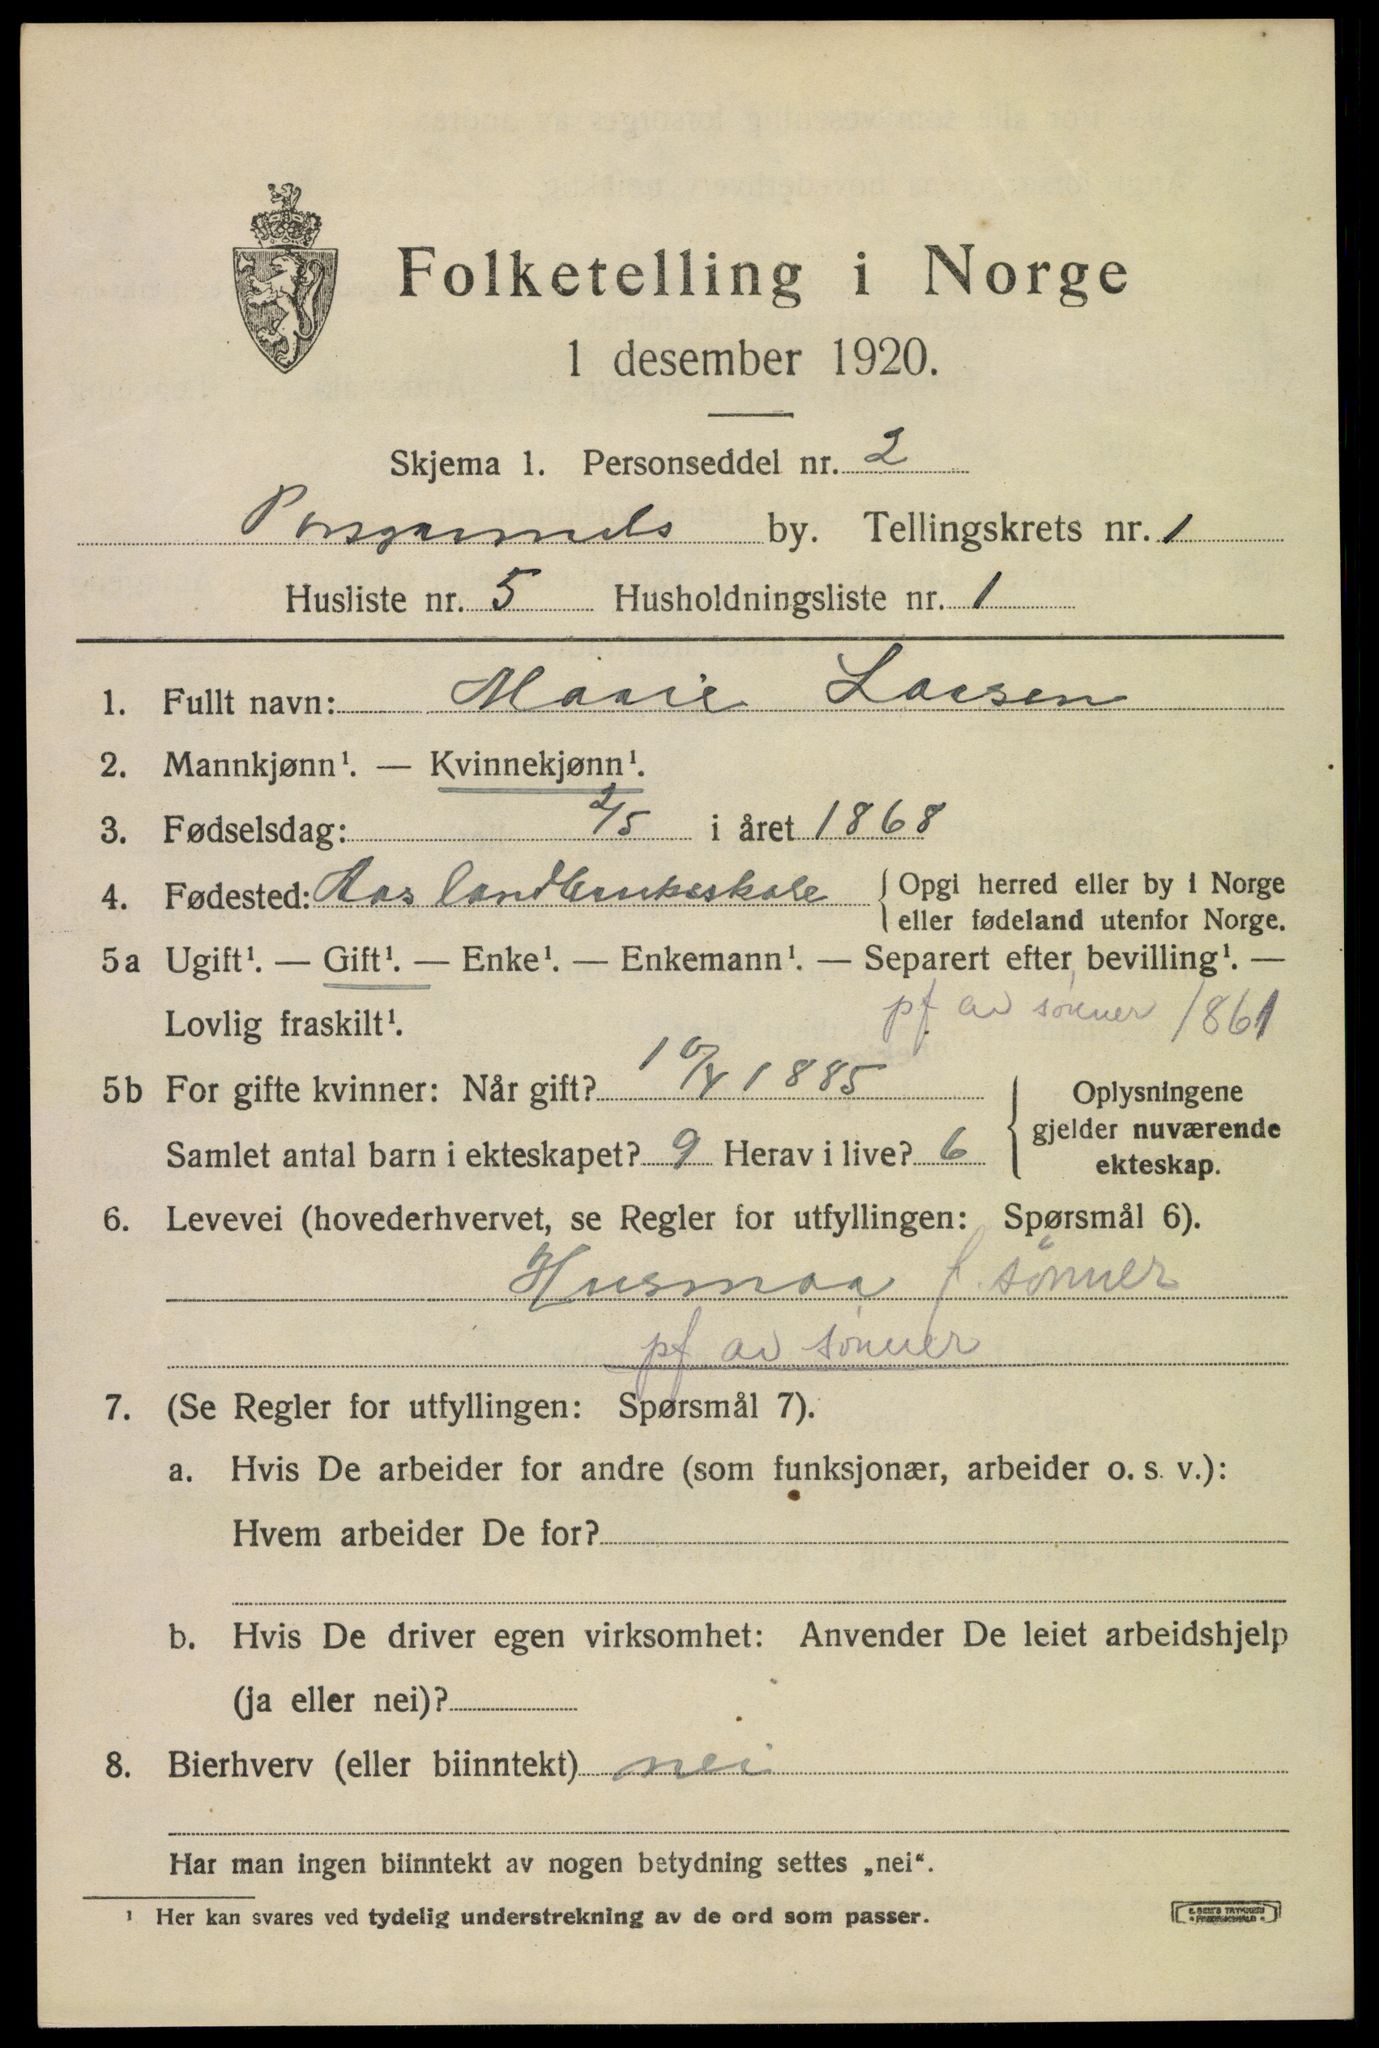 Folketelling i Norge
1 desember 1920.
Skjema 1. Personseddel nr. 2
Porsgrunds by. Tellingskrets nr. 1
Husliste nr. 5 Husholdningsliste nr. 1
1. Fullt navn: Marie Larsen
2. Mannkjønn¹. — Kvinnekjønn¹.
3. Fødselsdag: 2/5 i året 1868
4. Fødested: Aas landbruksskole { Opgi herred eller by i Norge
eller fødeland utenfor Norge.
5a Ugift¹. — Gift¹. — Enke¹. — Enkemann¹. — Separert efter bevilling¹. —
Lovlig fraskilt¹. pf av sønner 1861
5b For gifte kvinner: Når gift? 10/4 1885
Samlet antal barn i ekteskapet? 9 Herav i live? 6
Oplysningene
gjelder nuværende
ekteskap.
6. Levevei (hovederhvervet, se Regler for utfyllingen: Spørsmål 6).
Husmoa f. sønner
pf av sønner
7. (Se Regler for utfyllingen: Spørsmål 7).
a. Hvis De arbeider for andre (som funksjonær, arbeider o. s. v.):
Hvem arbeider De for?
b. Hvis De driver egen virksomhet: Anvender De leiet arbeidshjelp
(ja eller nei)?
8. Bierhverv (eller biinntekt) nei
Har man ingen biinntekt av nogen betydning settes „nei“.
¹ Her kan svares ved tydelig understrekning av de ord som passer.